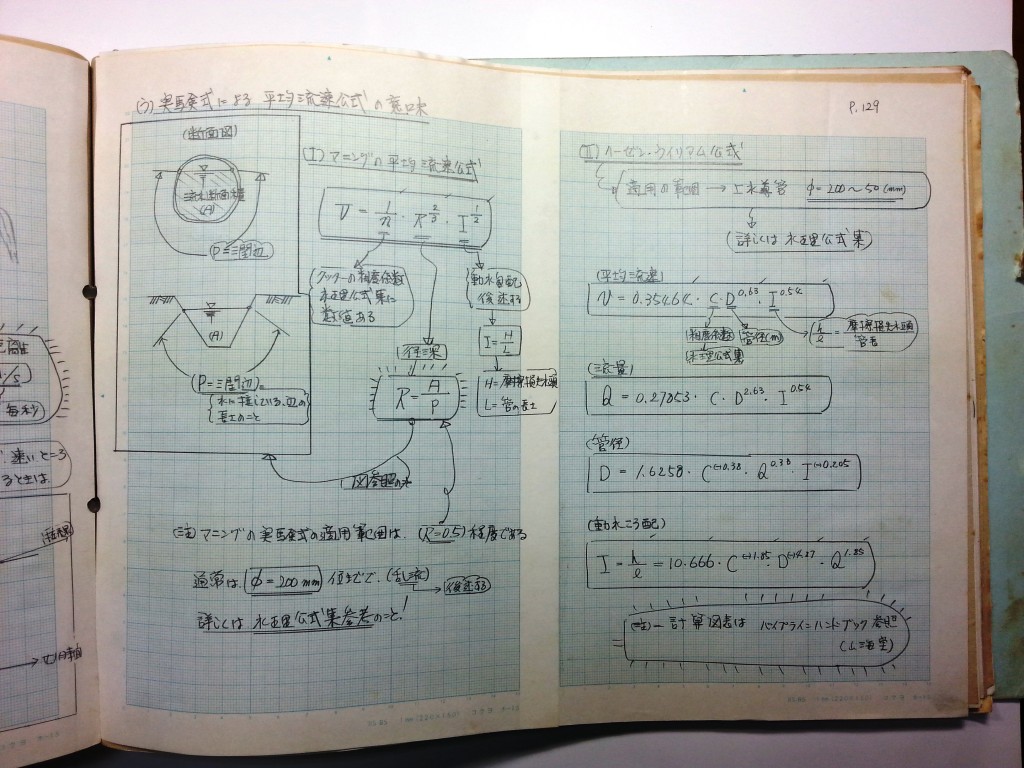 P.129
(ウ) 実験式による 平均流速公式 の意味
(断面図)
流水断面積
(A)
(P=三閏辺)
(A)
(P=三閏辺)=
水に接している辺の
長さのこと
(I) マニングの平均流速公式
V = 1/n · R^2/3 · I^1/2
クッターの粗度係数
水理公式集に
数値ある
動水勾配
後述する
I = H/L
H=摩擦損失水頭
L=管の長さ
径深
R = A/P
図参照の事
(注) マニングの実験式の適用範囲は、(R=0.5)程度である
通常は、φ=200mm 位までで、(乱流) → 後述する
詳しくは 水理公式集参考のこと!
(II) ヘーゼン・ウイリアム公式
適用の範囲 → 上水導管 φ=200〜50(mm)
(詳しくは 水理公式集)
(平均流速)
V = 0.35464 · C · D^0.63 · I^0.54
粗度係数
管径(m)
水理公式集
h/l = 摩擦損失水頭/管長
(流量)
Q = 0.27853 · C · D^2.63 · I^0.54
(管径)
D = 1.6258 · C^(-)0.38 · Q^0.38 · I^(-)0.205
(動水こう配)
I = h/l = 10.666 · C^(-)1.85 · D^(-)4.87 · Q^1.85
(注)− 計算図表は パイプラインハンドブック 参照
(山海堂)
毎秒
速いところ
るときは